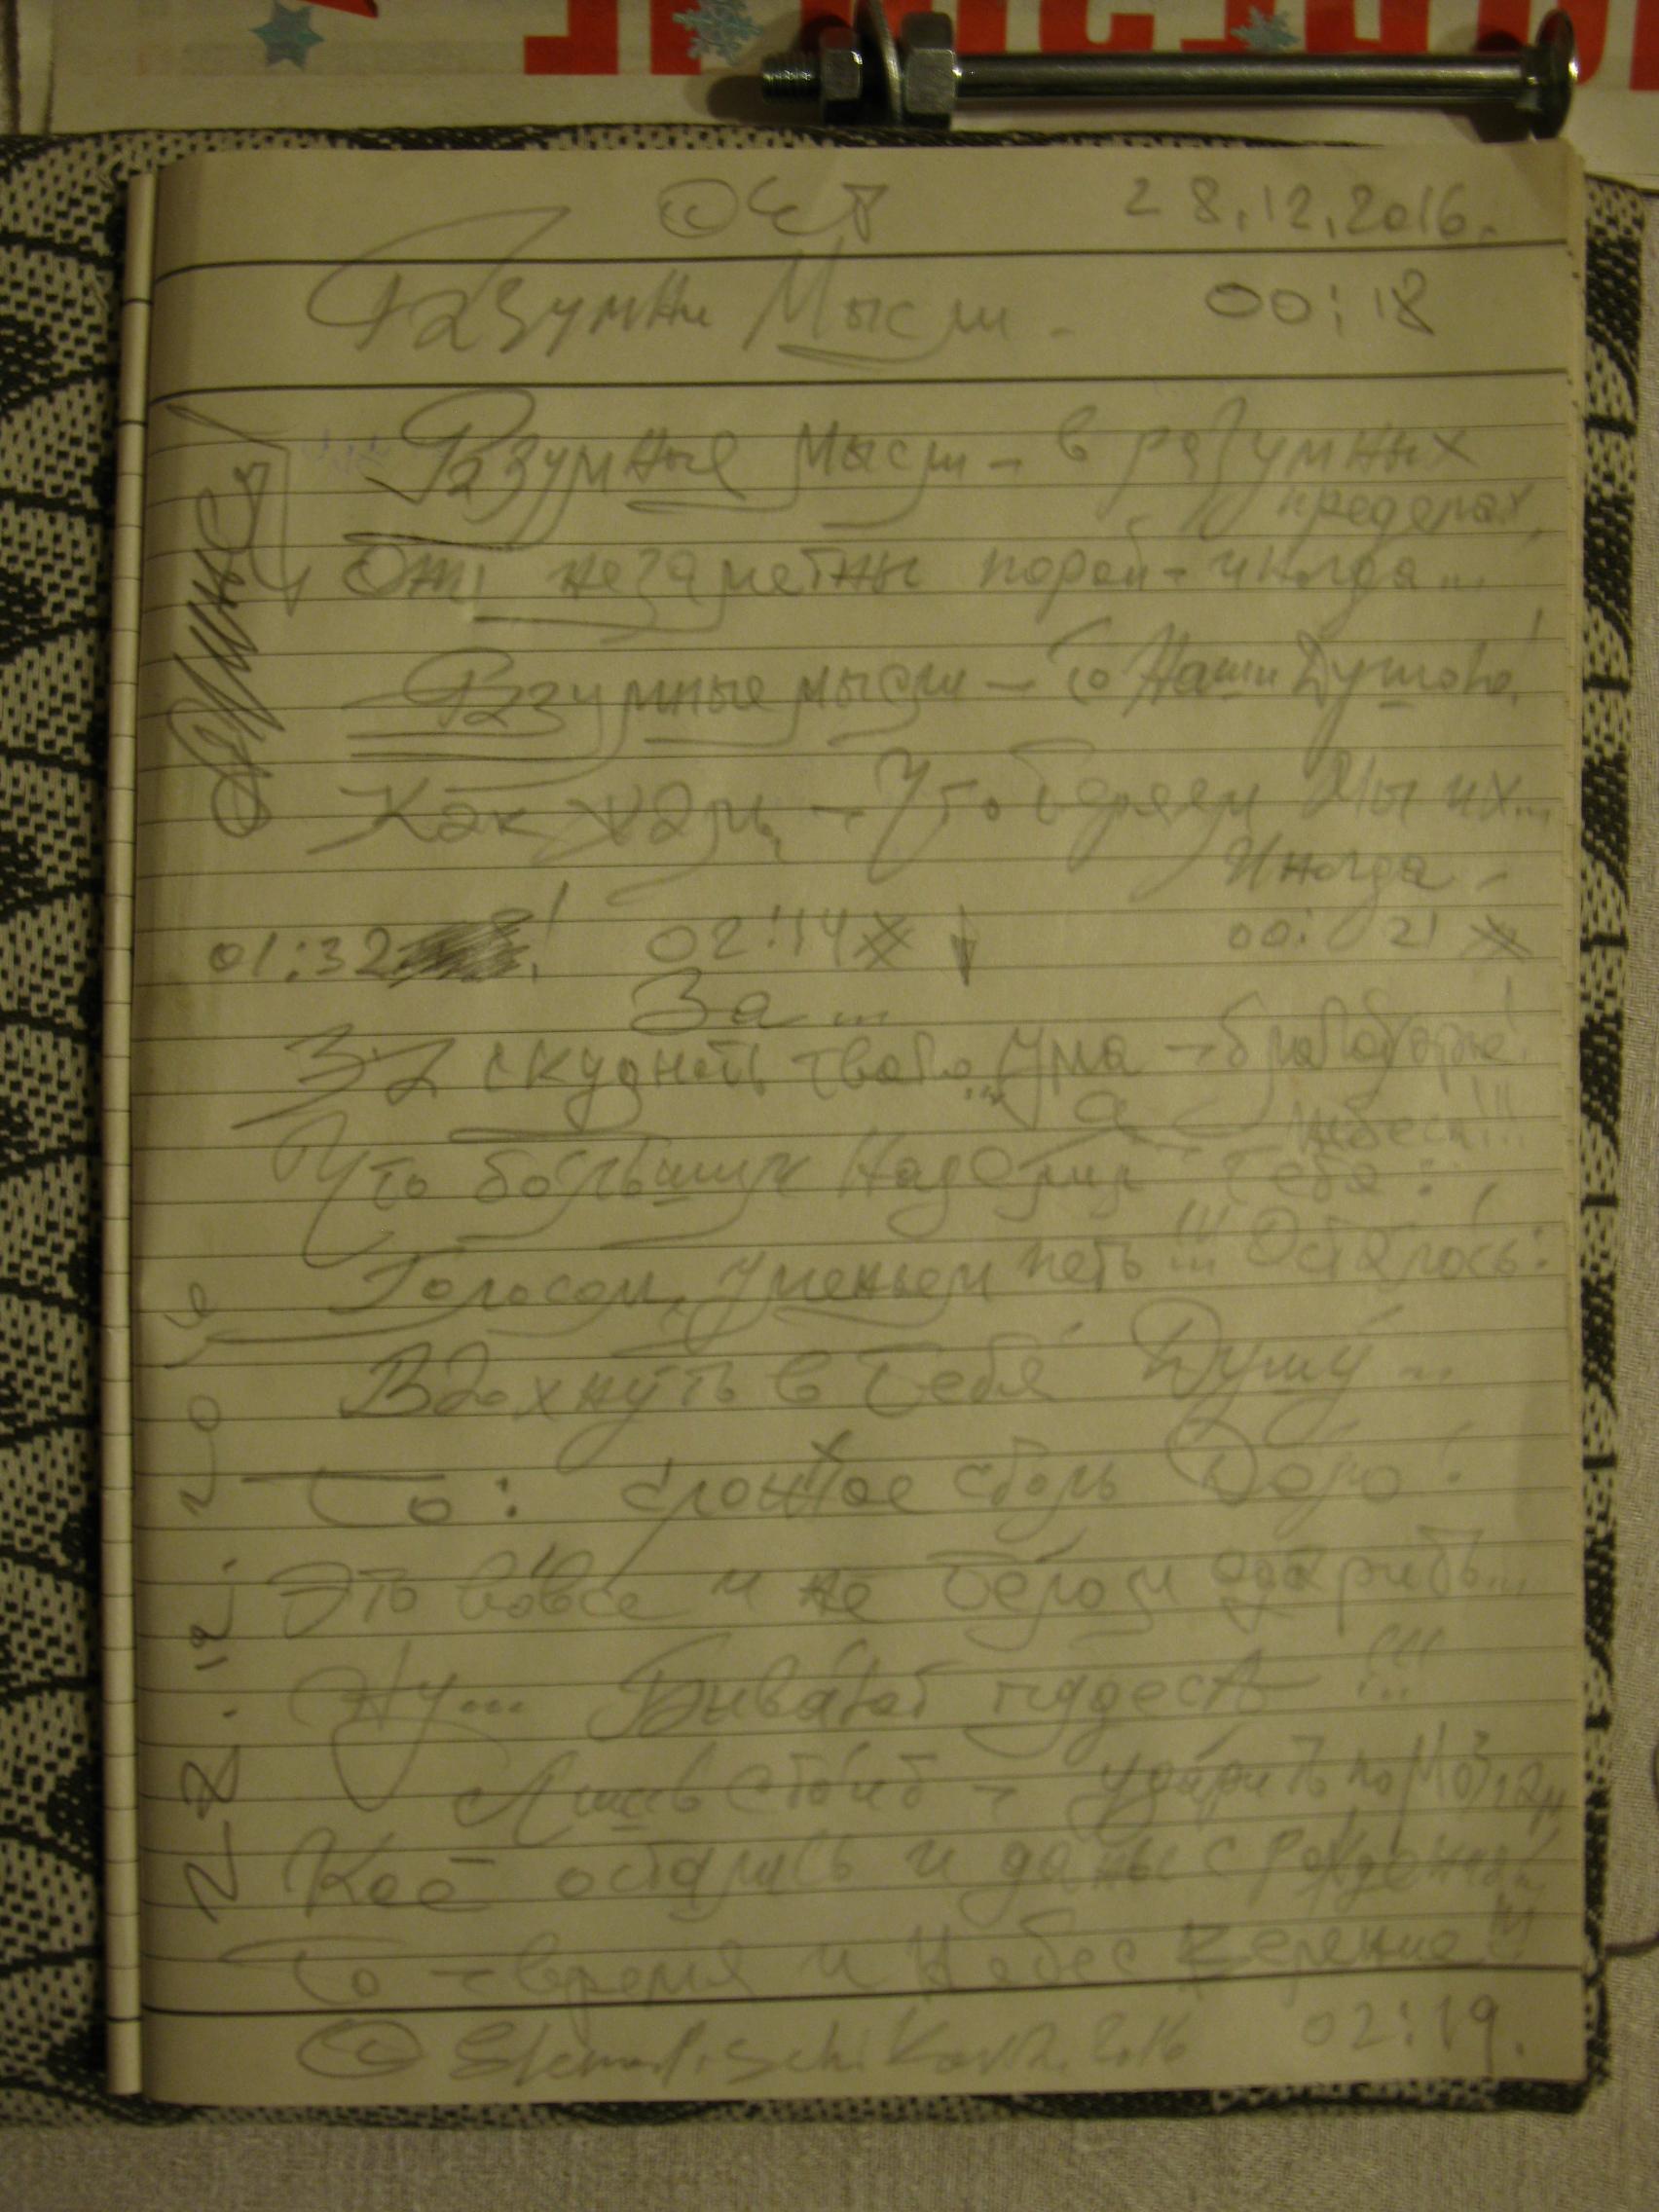 28.12.2016.
Разумны Мысли - 00:18
Разумные мысли - в разумных
пределах,
Они незаметны порой - иногда...
Разумные мысли - то Наши Душою!
Как жаль, - Что теряем Мы их...
Иногда -
01:32 02:14 00:21
За...
За скудность твоего... Ума -
Небеса!!!
Что большим Наделили тебя:
Голосом, Уменьем петь!!! Осталось:
Вдохнуть в Тебя Душу...
То: сложное столь Дело!
Это вовсе и не Телом одарить...
Ну... Бывают чудеса!!!
Лишь стоит - ударить по Мозгам
Кое остались и даны с Рождения!
То - время и Небес Терение!!!
© 2016 02:19.